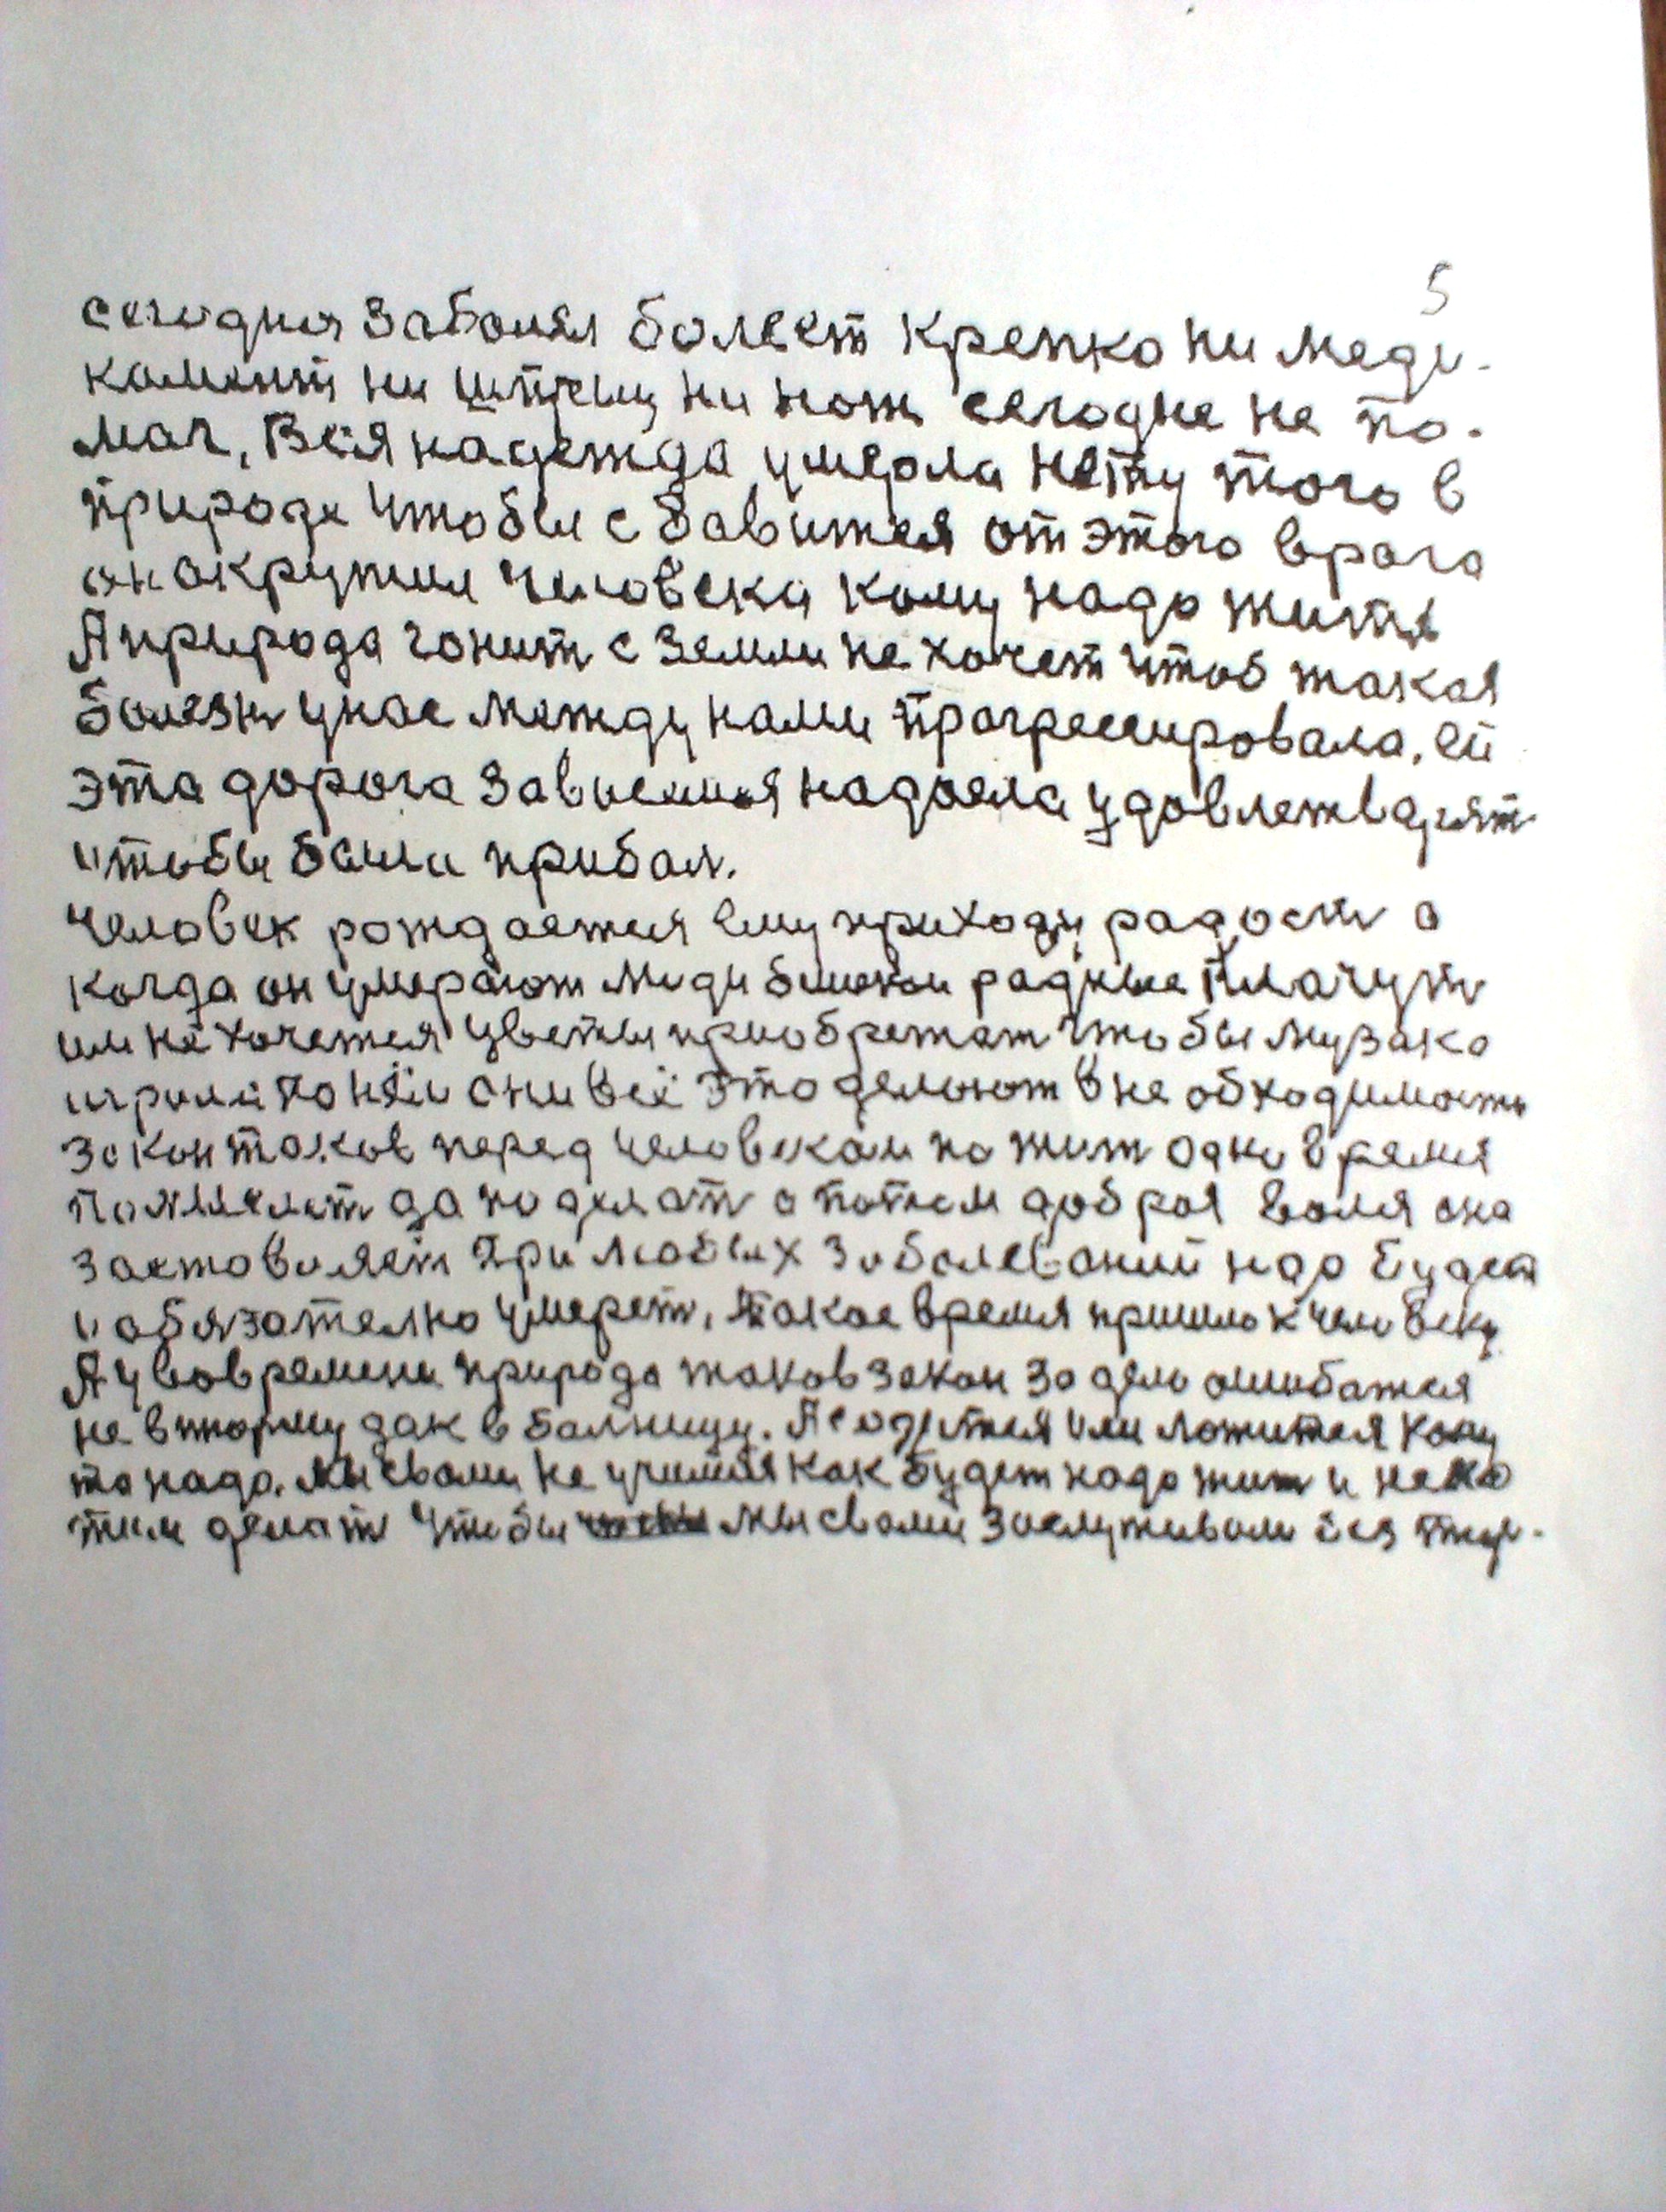 5
сегодня заболел болеет крепко ни меди-
камент ни шприц ни нож сегодне не по-
мог, Вся надежда умерла нету того в
природе чтобы сбавится от этого врага
он окружил человека кому надо жить
А природа гонит с земли не хочет чтоб такая
болезн у нас между нами прогресировала. ей
эта дорога надоела удовлетварят
чтобы была прибал.
Человек рождается ему приходи радости а
когда он умерают люди родные плачут
им не хочется цветы приобретат чтобы музака
играла по нём они всё это делоют в не обходимость
закон таков перед человекам по жит одно время
да по делат а потом доброя воля она
заставиляет при любых заболеваний надо будет
и обязателно умерет, такое время пришло к человеку
А у вовремени природа таков закон за дело ошибатся
не в тюрму дак в балницу. А садится или ложится кому
то надо. Мы свами не учимся как будет надо жит и не хо
тим делат чтобы мы свами заслуживали